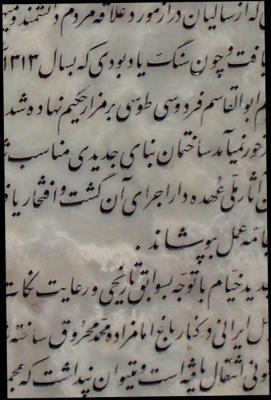 که از سالیان دراز مورد علاقه مردم دانشمند و
یافت و چون سنگ یادبودی که بسال ۱۳۱۳
ابوالقاسم فردوسی طوسی بر مزار حکیم نهاده شد
درخور نمیآمد ساختمان بنای جدیدی مناسب
آثار ملی عهده دار اجرای آن گشت و افتخار
جامه عمل بپوشاند .
جدید خیام با توجه بسوابق تاریخی و رعایت نکات
ایرانی در کنار باغ امامزاده محمد محروق ساخته
اشتغال یافته است و میتوان پنداشت که